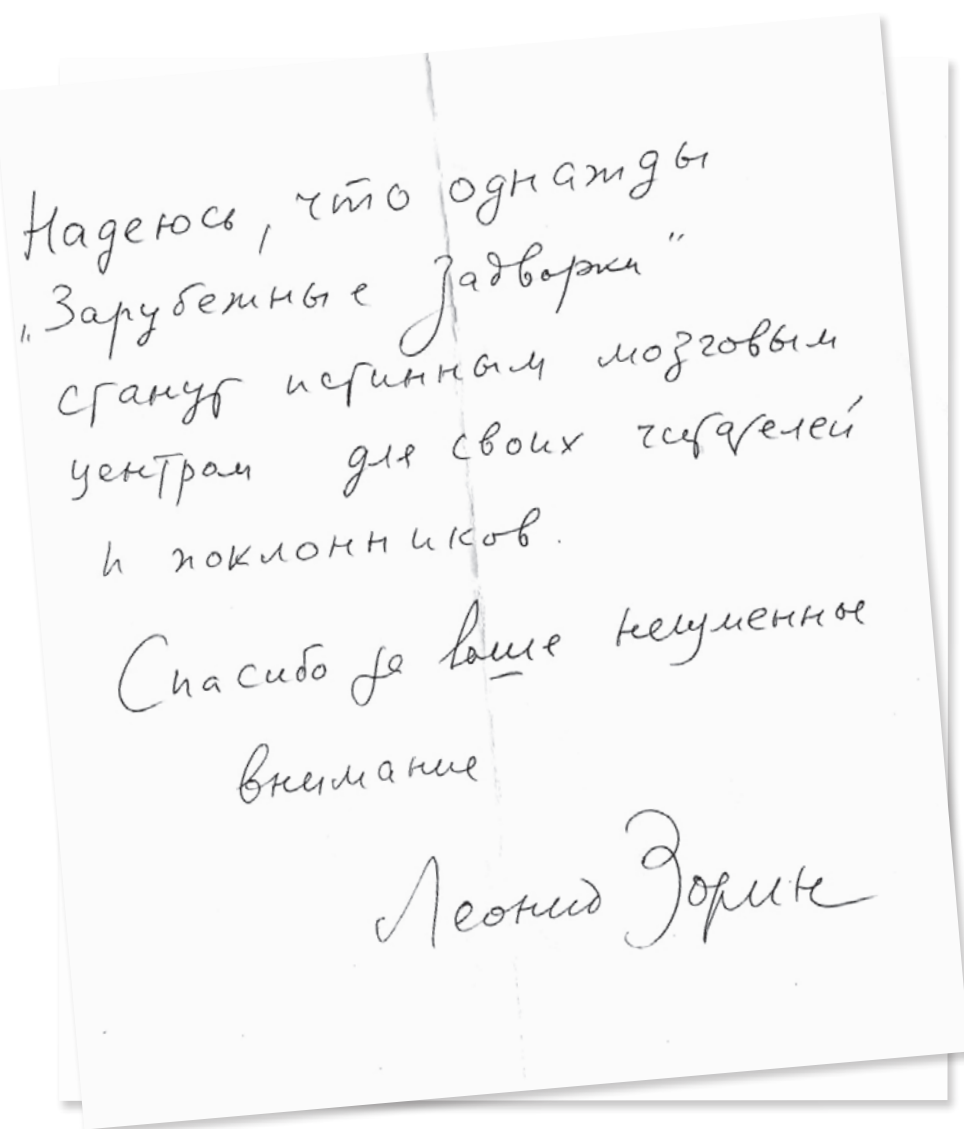 Надеюсь, что однажды
„Зарубежные Задворки“
станут истинным мозговым
центром для своих читателей
и поклонников.
Спасибо за ваше неизменное
внимание
Леонид Зорин